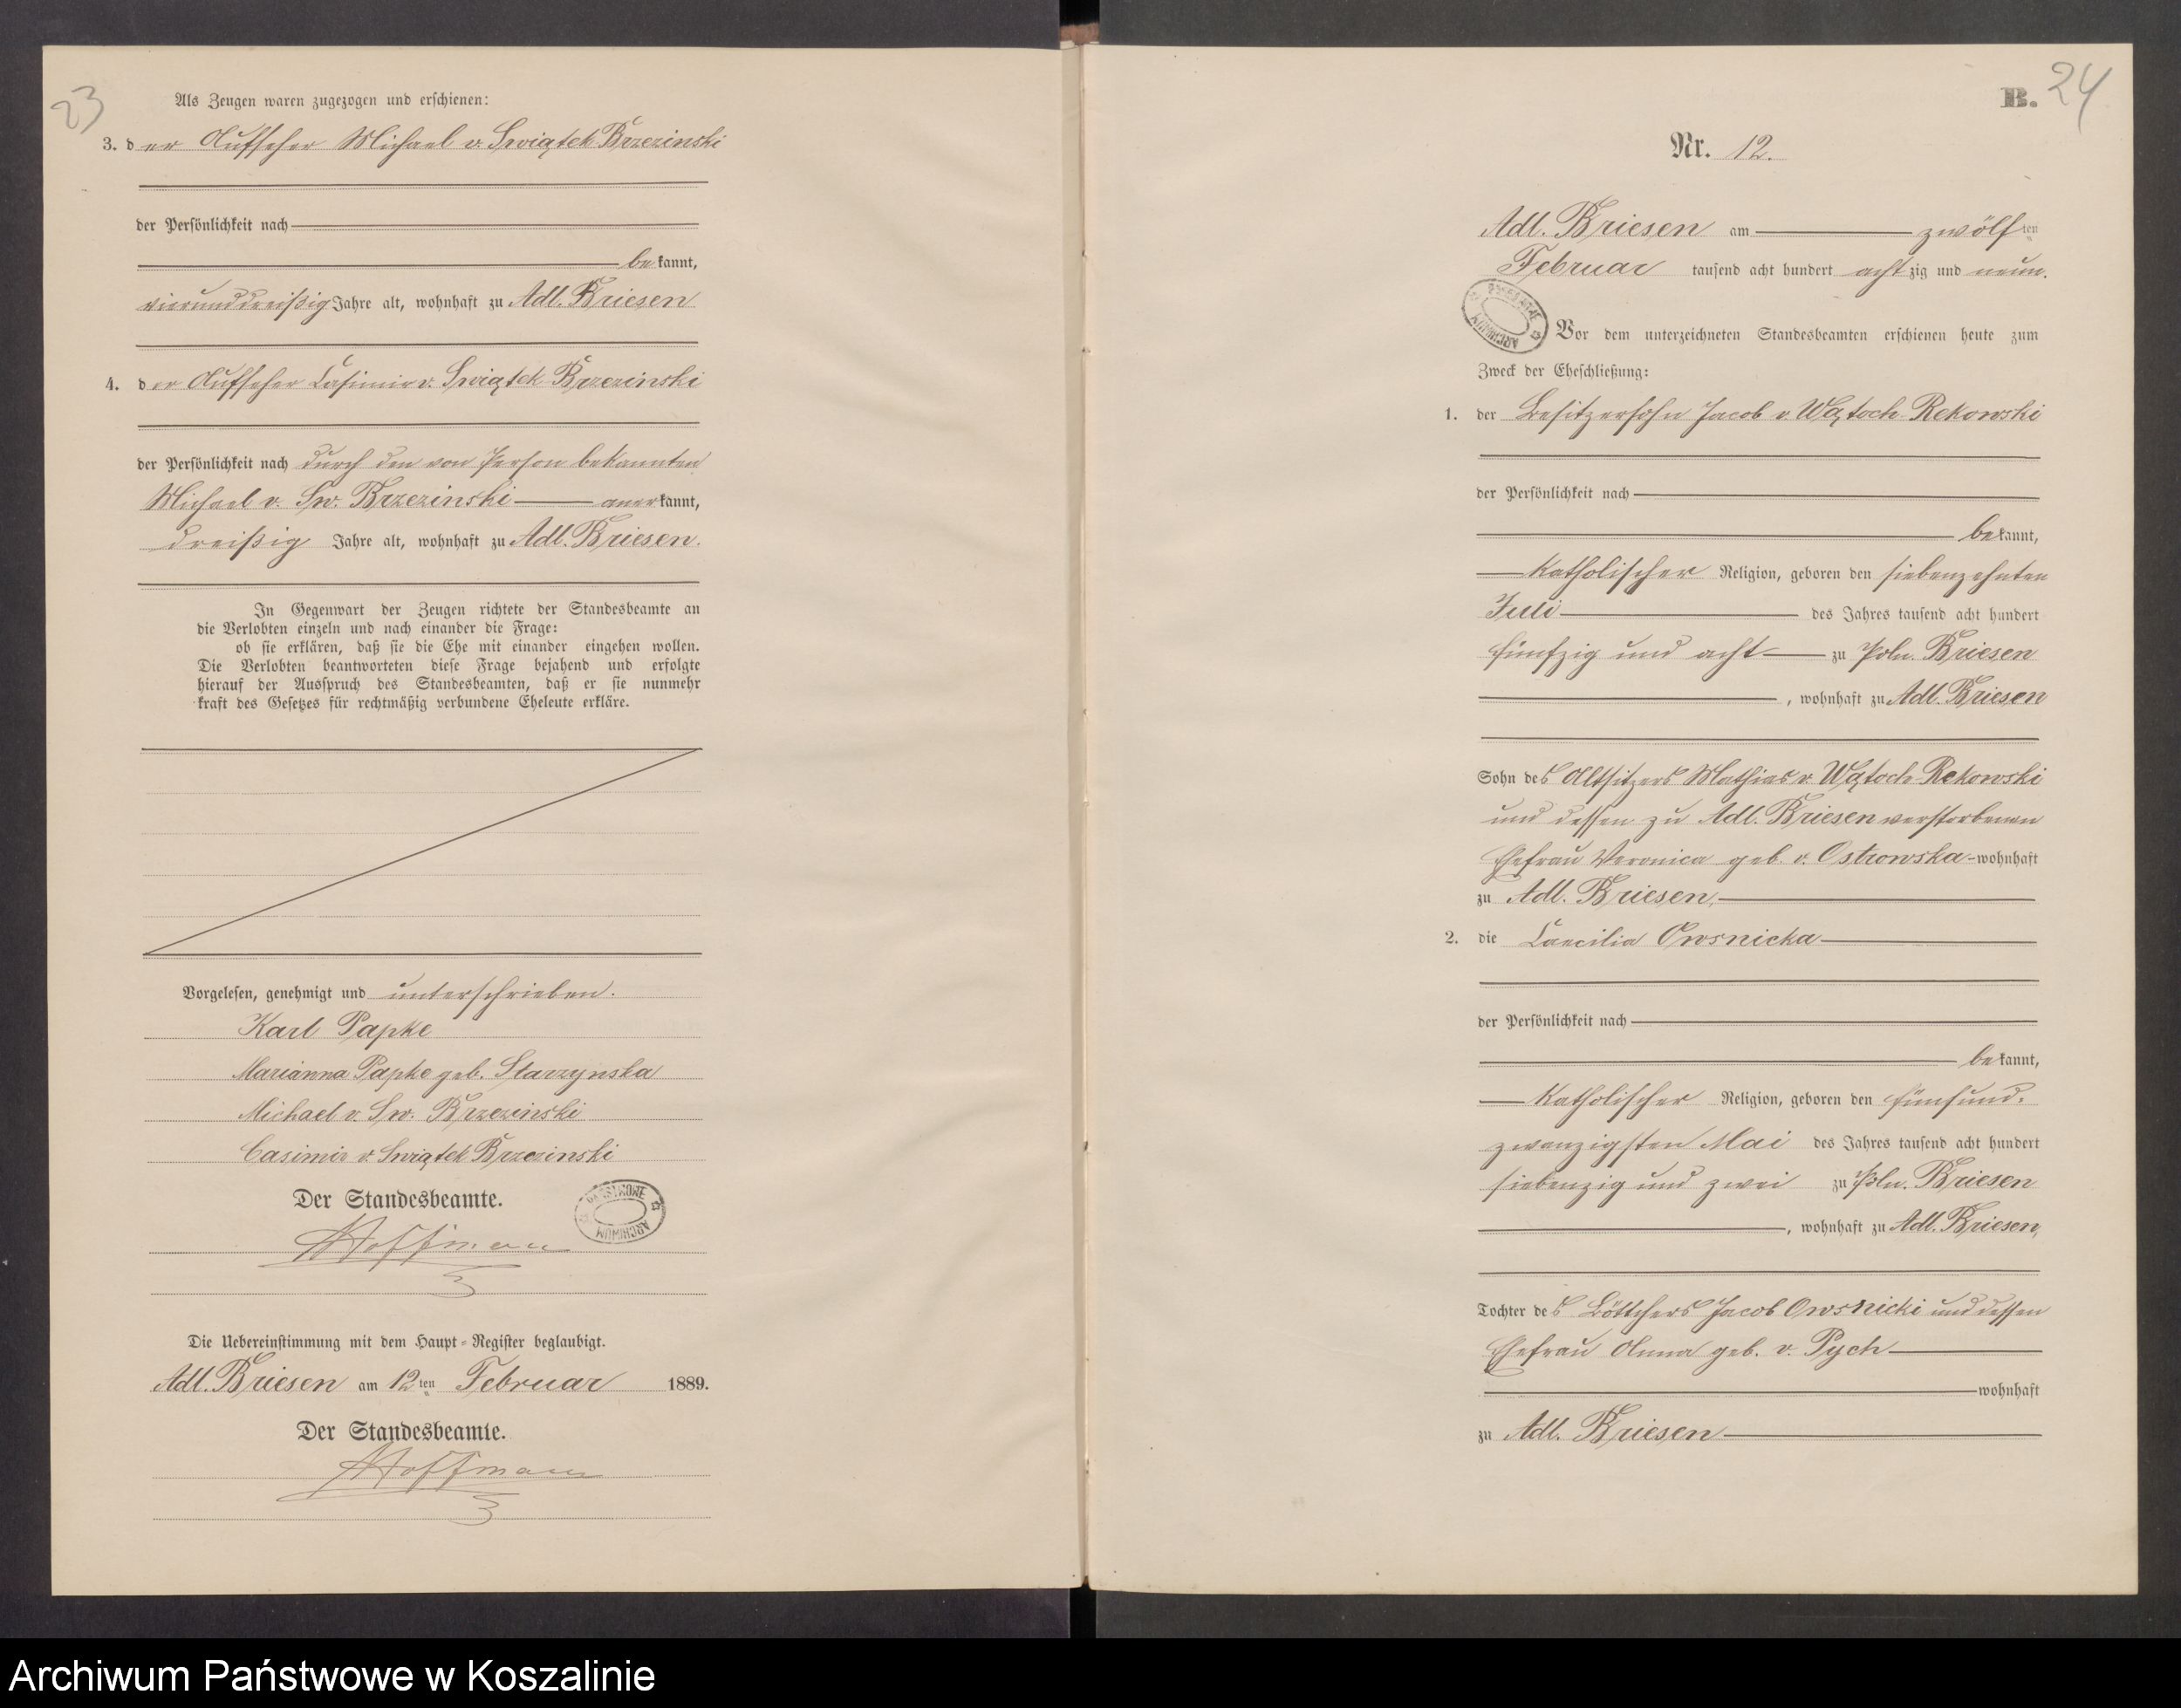 23
Als Zeugen waren zugezogen und erschienen:
3. der Aufseher Michael v. Swiątek Brzezinski
der Persönlichkeit nach
bekannt,
vierunddreißig Jahre alt, wohnhaft zu Adl. Briesen
4. der Aufseher Casimir v. Swiątek Brzezinski
der Persönlichkeit nach durch den von Person bekannten
Michael v. Sw. Brzezinski anerkannt,
dreißig Jahre alt, wohnhaft zu Adl. Briesen.
In Gegenwart der Zeugen richtete der Standesbeamte an
die Verlobten einzeln und nach einander die Frage:
ob sie erklären, daß sie die Ehe mit einander eingehen wollen.
Die Verlobten beantworteten diese Frage bejahend und erfolgte
hierauf der Ausspruch des Standesbeamten, daß er sie nunmehr
kraft des Gesetzes für rechtmäßig verbundene Eheleute erkläre.
Vorgelesen, genehmigt und unterschrieben.
Karl Papke
Marianna Papke geb. Starzynska
Michael v. Sw. Brzezinski
Casimir v. Swiątek Brzezinski
Der Standesbeamte.
ARCHIWUM PAŃSTWOWE
Hoffmann
Die Uebereinstimmung mit dem Haupt-Register beglaubigt.
Adl. Briesen am 12ten Februar 1889.
Der Standesbeamte.
Hoffmann
B. 24
Nr. 12.
Adl. Briesen am zwölften
Februar tausend acht hundert achtzig und neun.
ARCHIWUM PAŃSTWOWE
Vor dem unterzeichneten Standesbeamten erschienen heute zum
Zweck der Eheschließung:
1. der Besitzersohn Jacob v. Wątoch Rekowski
der Persönlichkeit nach
bekannt,
katholischer Religion, geboren den siebenzehnten
Juli des Jahres tausend acht hundert
fünfzig und acht zu Poln. Briesen
, wohnhaft zu Adl. Briesen
Sohn des Altsitzers Mathias v. Wątoch Rekowski
und dessen zu Adl. Briesen verstorbenen
Ehefrau Veronica geb. v. Ostrowska wohnhaft
zu Adl. Briesen,
2. die Caecilia Owsnicka
der Persönlichkeit nach
bekannt,
katholischer Religion, geboren den fünfund-
zwanzigsten Mai des Jahres tausend acht hundert
siebenzig und zwei zu Poln. Briesen
, wohnhaft zu Adl. Briesen,
Tochter des Böttchers Jacob Owsnicki und dessen
Ehefrau Anna geb. v. Pych
wohnhaft
zu Adl. Briesen
Archiwum Państwowe w Koszalinie